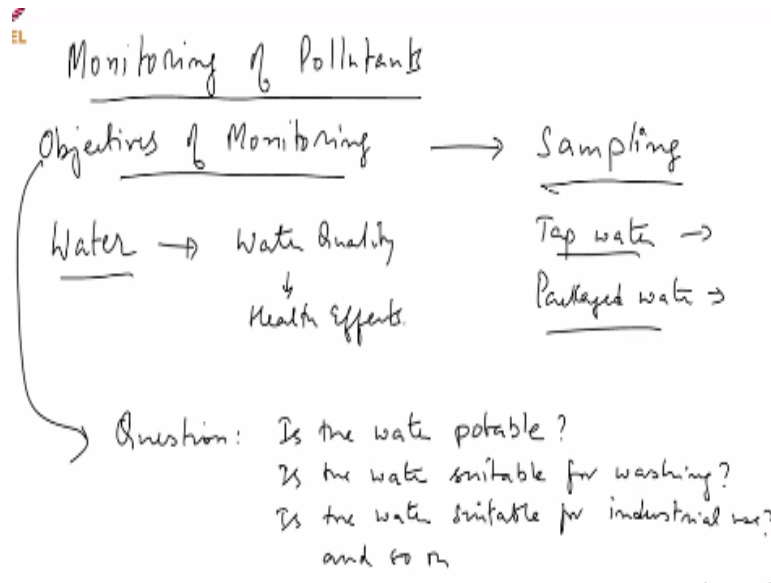 EL
Monitoring of Pollutants
Objectives of Monitoring → Sampling
Water → Water Quality
Tap water →
↓
Health Effects.
Packaged water →
Question: Is the water potable?
Is the water suitable for washing?
Is the water suitable for industrial use?
and so on